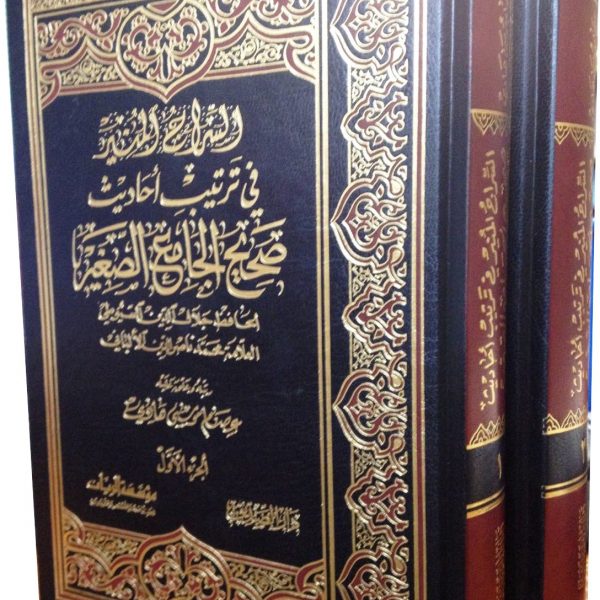 السراج المنير
في ترتيب أحاديث
صحيح الجامع الصغير
للحافظ جلال الدين السيوطي
العلامة محمد ناصر الدين الألباني
رتبه وعلق عليه
عصام موسى هادي
الجزء الأول
دار الصديق
مؤسسة الريان
السراج المنير في ترتيب أحاديث
١
السراج المنير في ترتيب أحاديث
٢